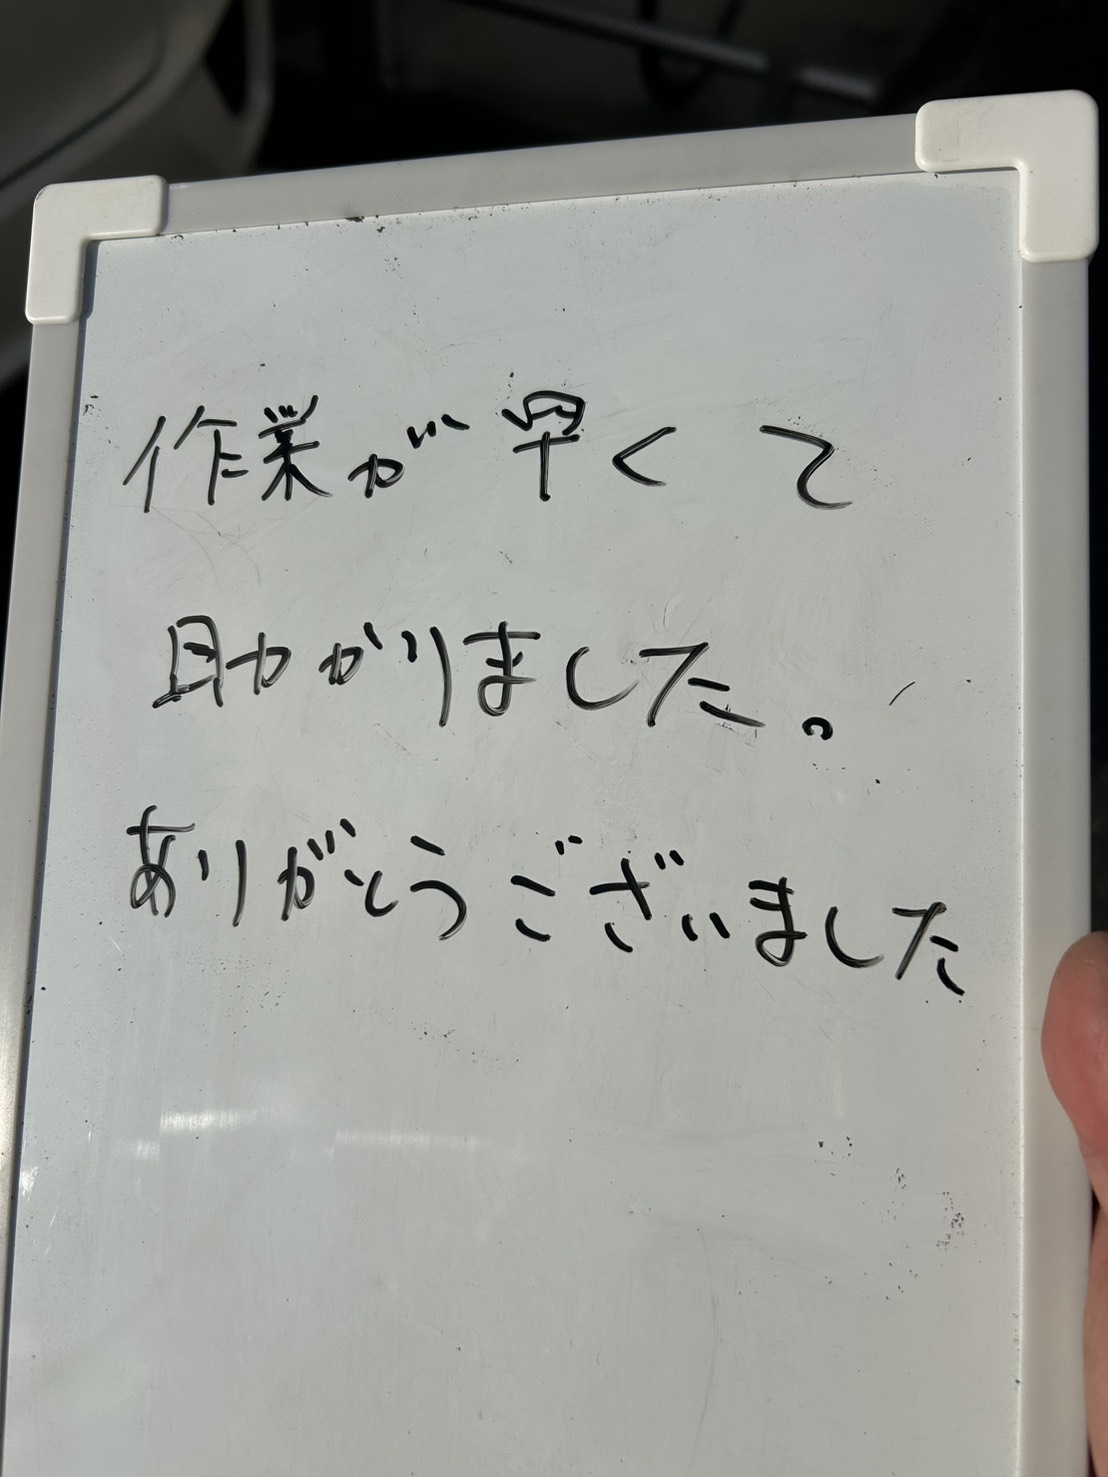 作業が早くて
助かりました。
ありがとうございました